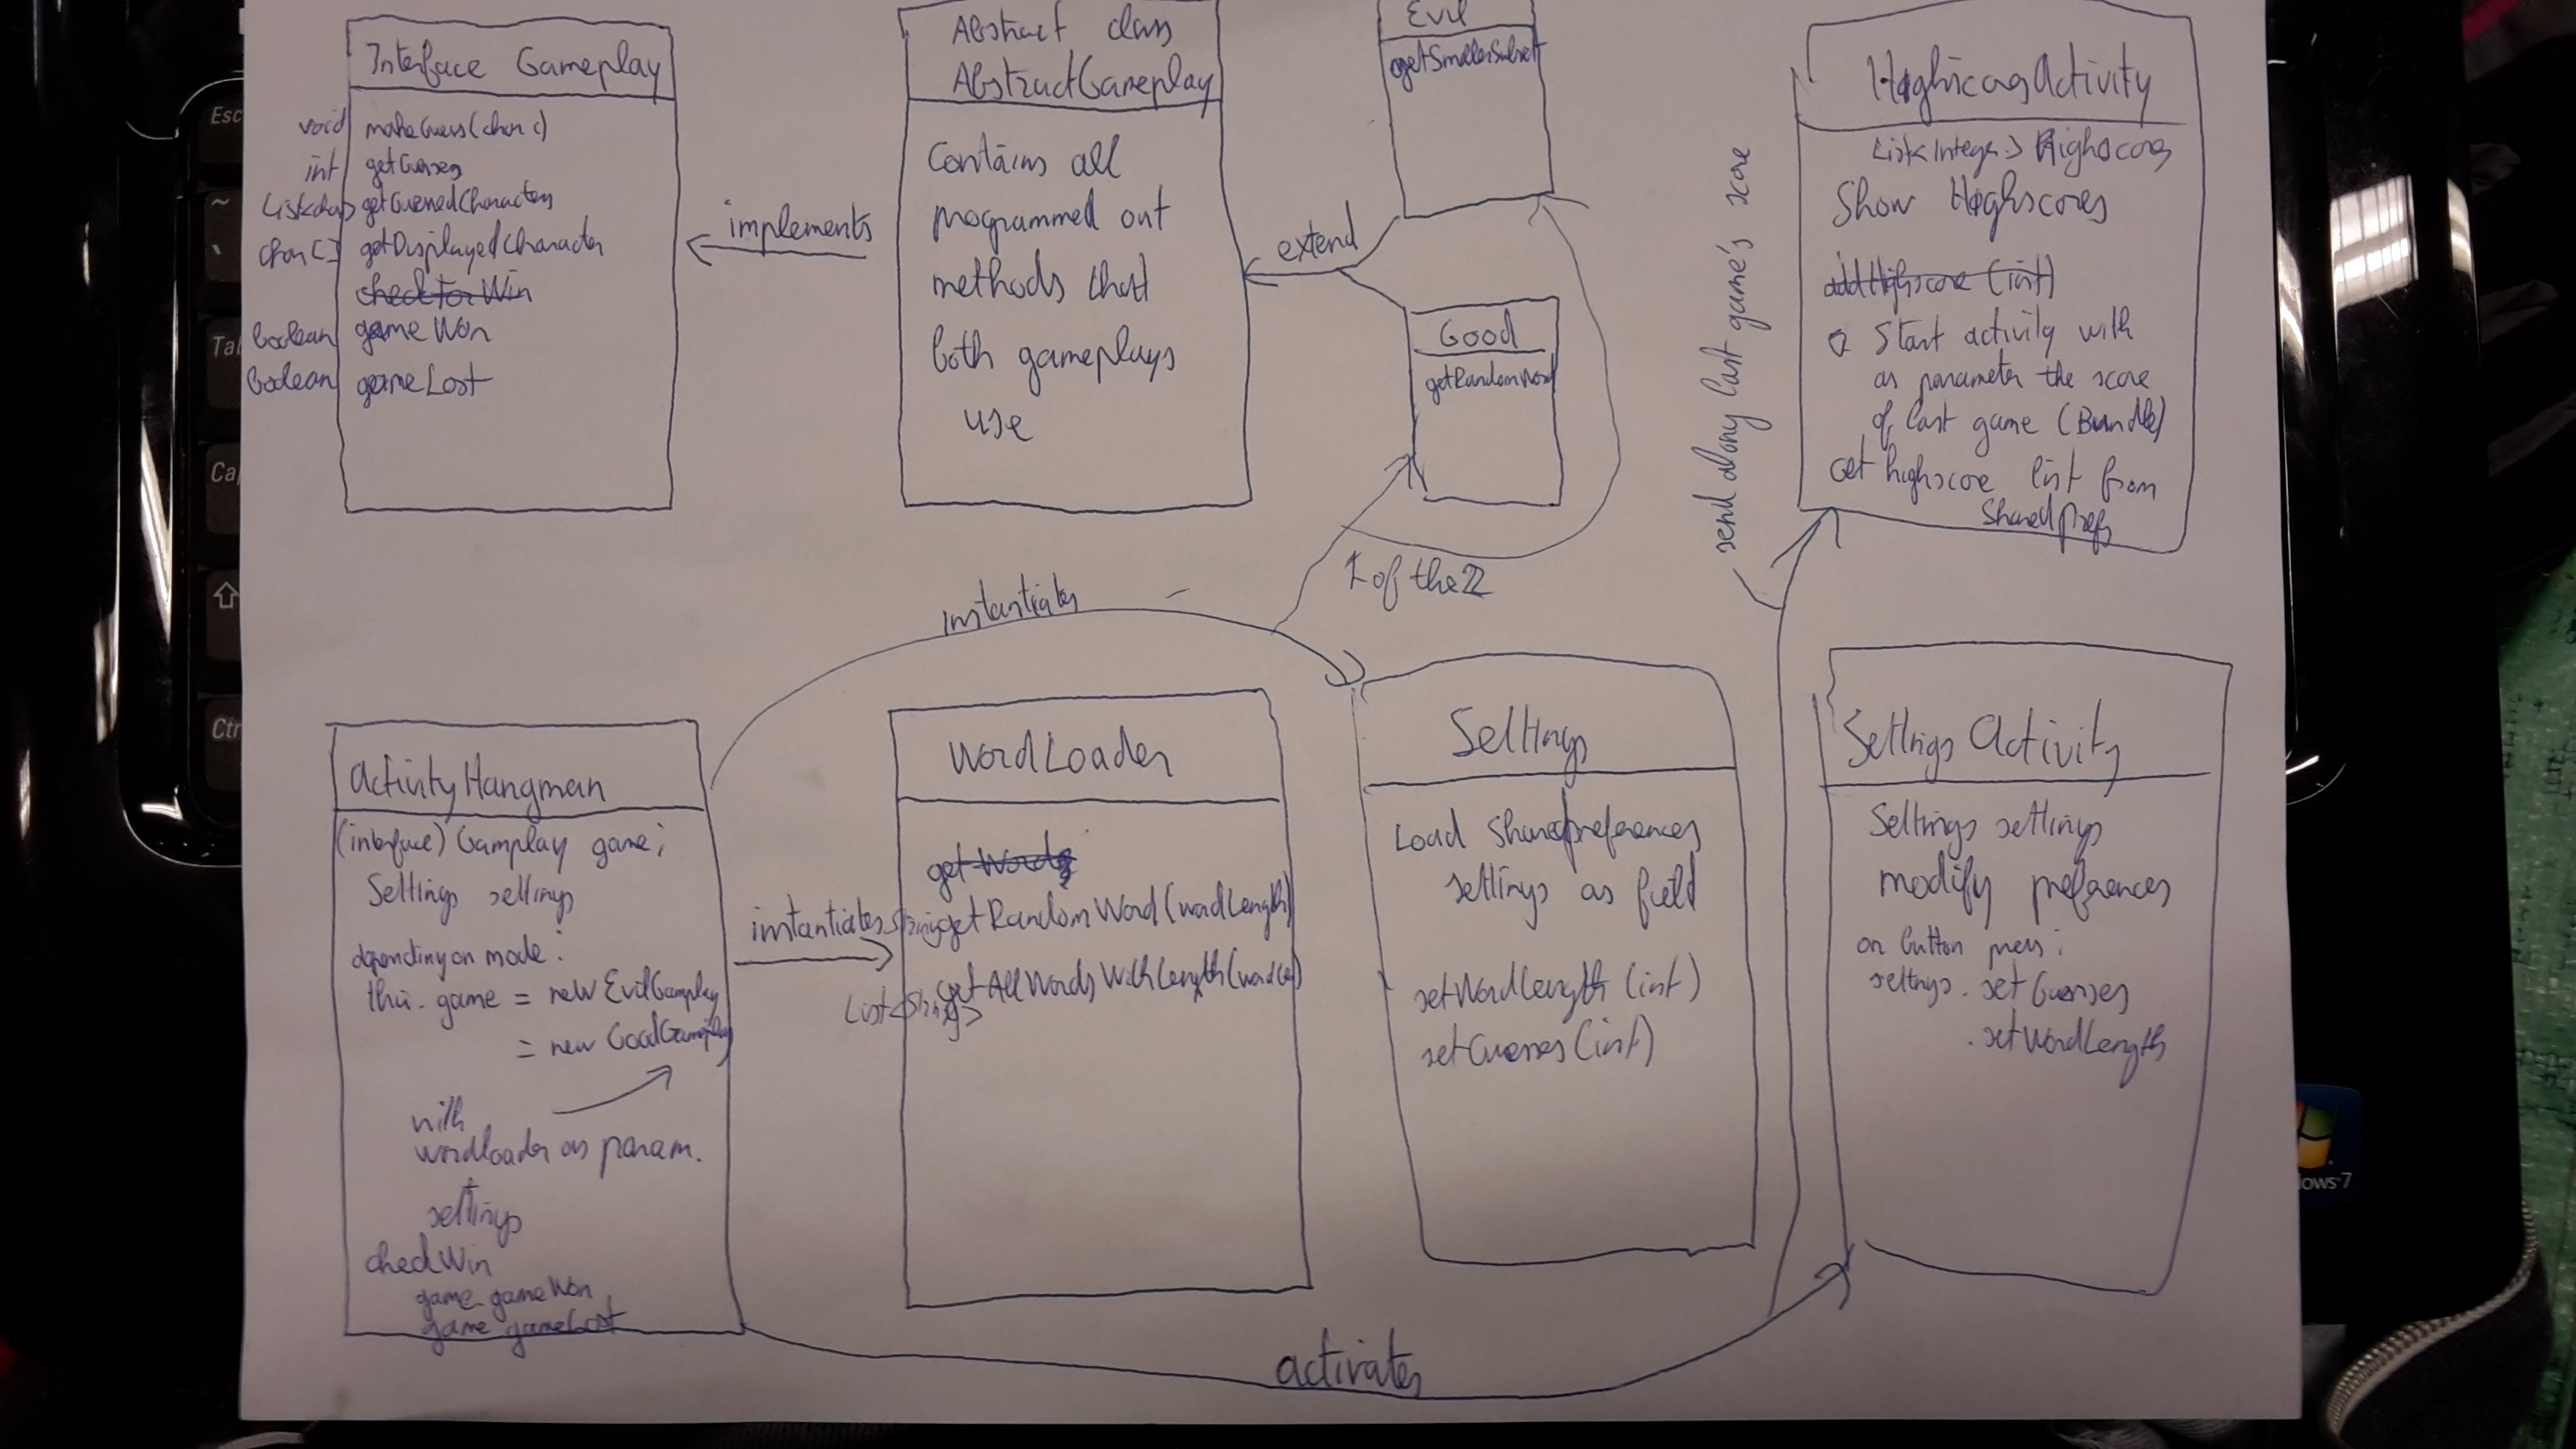 Interface Gameplay
void makeGuess(char c)
int getGuesses
List<char> getGuessedCharacters
char[] getDisplayedCharacter
checkForWin
boolean gameWon
boolean gameLost
implements
Abstract class
AbstractGameplay
Contains all
programmed out
methods that
both gameplays
use
extend
Evil
getSmallerSubset
Good
getRandomWord
1 of the 2
send along last game's score
HighscoresActivity
List<Integer> Highscores
Show Highscores
addHighscore (int)
Start activity with
as parameter the score
of last game (Bundle)
Get highscore list from
SharedPrefs
instantiates
ActivityHangman
(interface) Gamplay game;
Settings settings
depending on mode:
this.game = new EvilGameplay
= new GoodGameplay
with
wordloader as param.
+
settings
checkWin
game.gameWon
game.gameLost
instantiates
WordLoader
get Words
String getRandomWord(wordLength)
List<String> getAllWordsWithLength(wordLe)
Settings
Load Sharedpreferences
settings as field
setWordLength (int)
setGuesses (int)
Settings Activity
Settings settings
modify preferences
on button press:
settings.setGuesses
.setWordLength
activates
Esc
~
Ctr